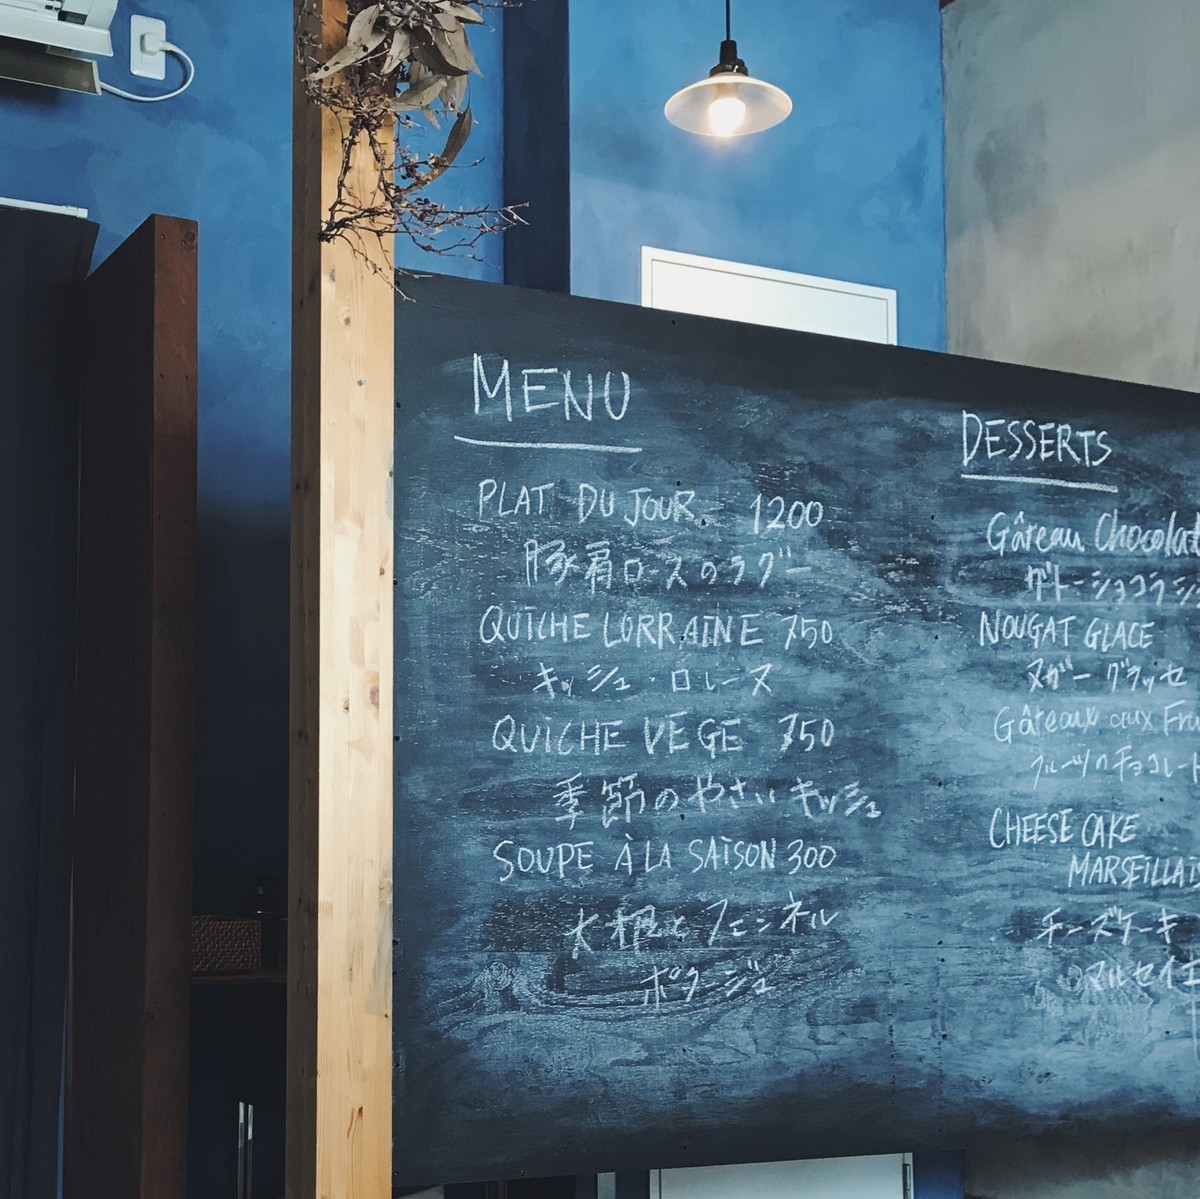 MENU
PLAT DU JOUR 1200
豚肩ロースのラグー
QUICHE LORRAINE 750
キッシュ・ロレーヌ
QUICHE VÉGE 750
季節のやさいキッシュ
SOUPE À LA SAISON 300
大根とフェンネル
ポタージュ
DESSERTS
Gâteau Chocolat
ガトーショコラ
NOUGAT GLACE
ヌガーグラッセ
Gâteaux aux
フルーツのチョコレート
CHEESE CAKE
MARSEILLAI
チーズケーキ
マルセイエ